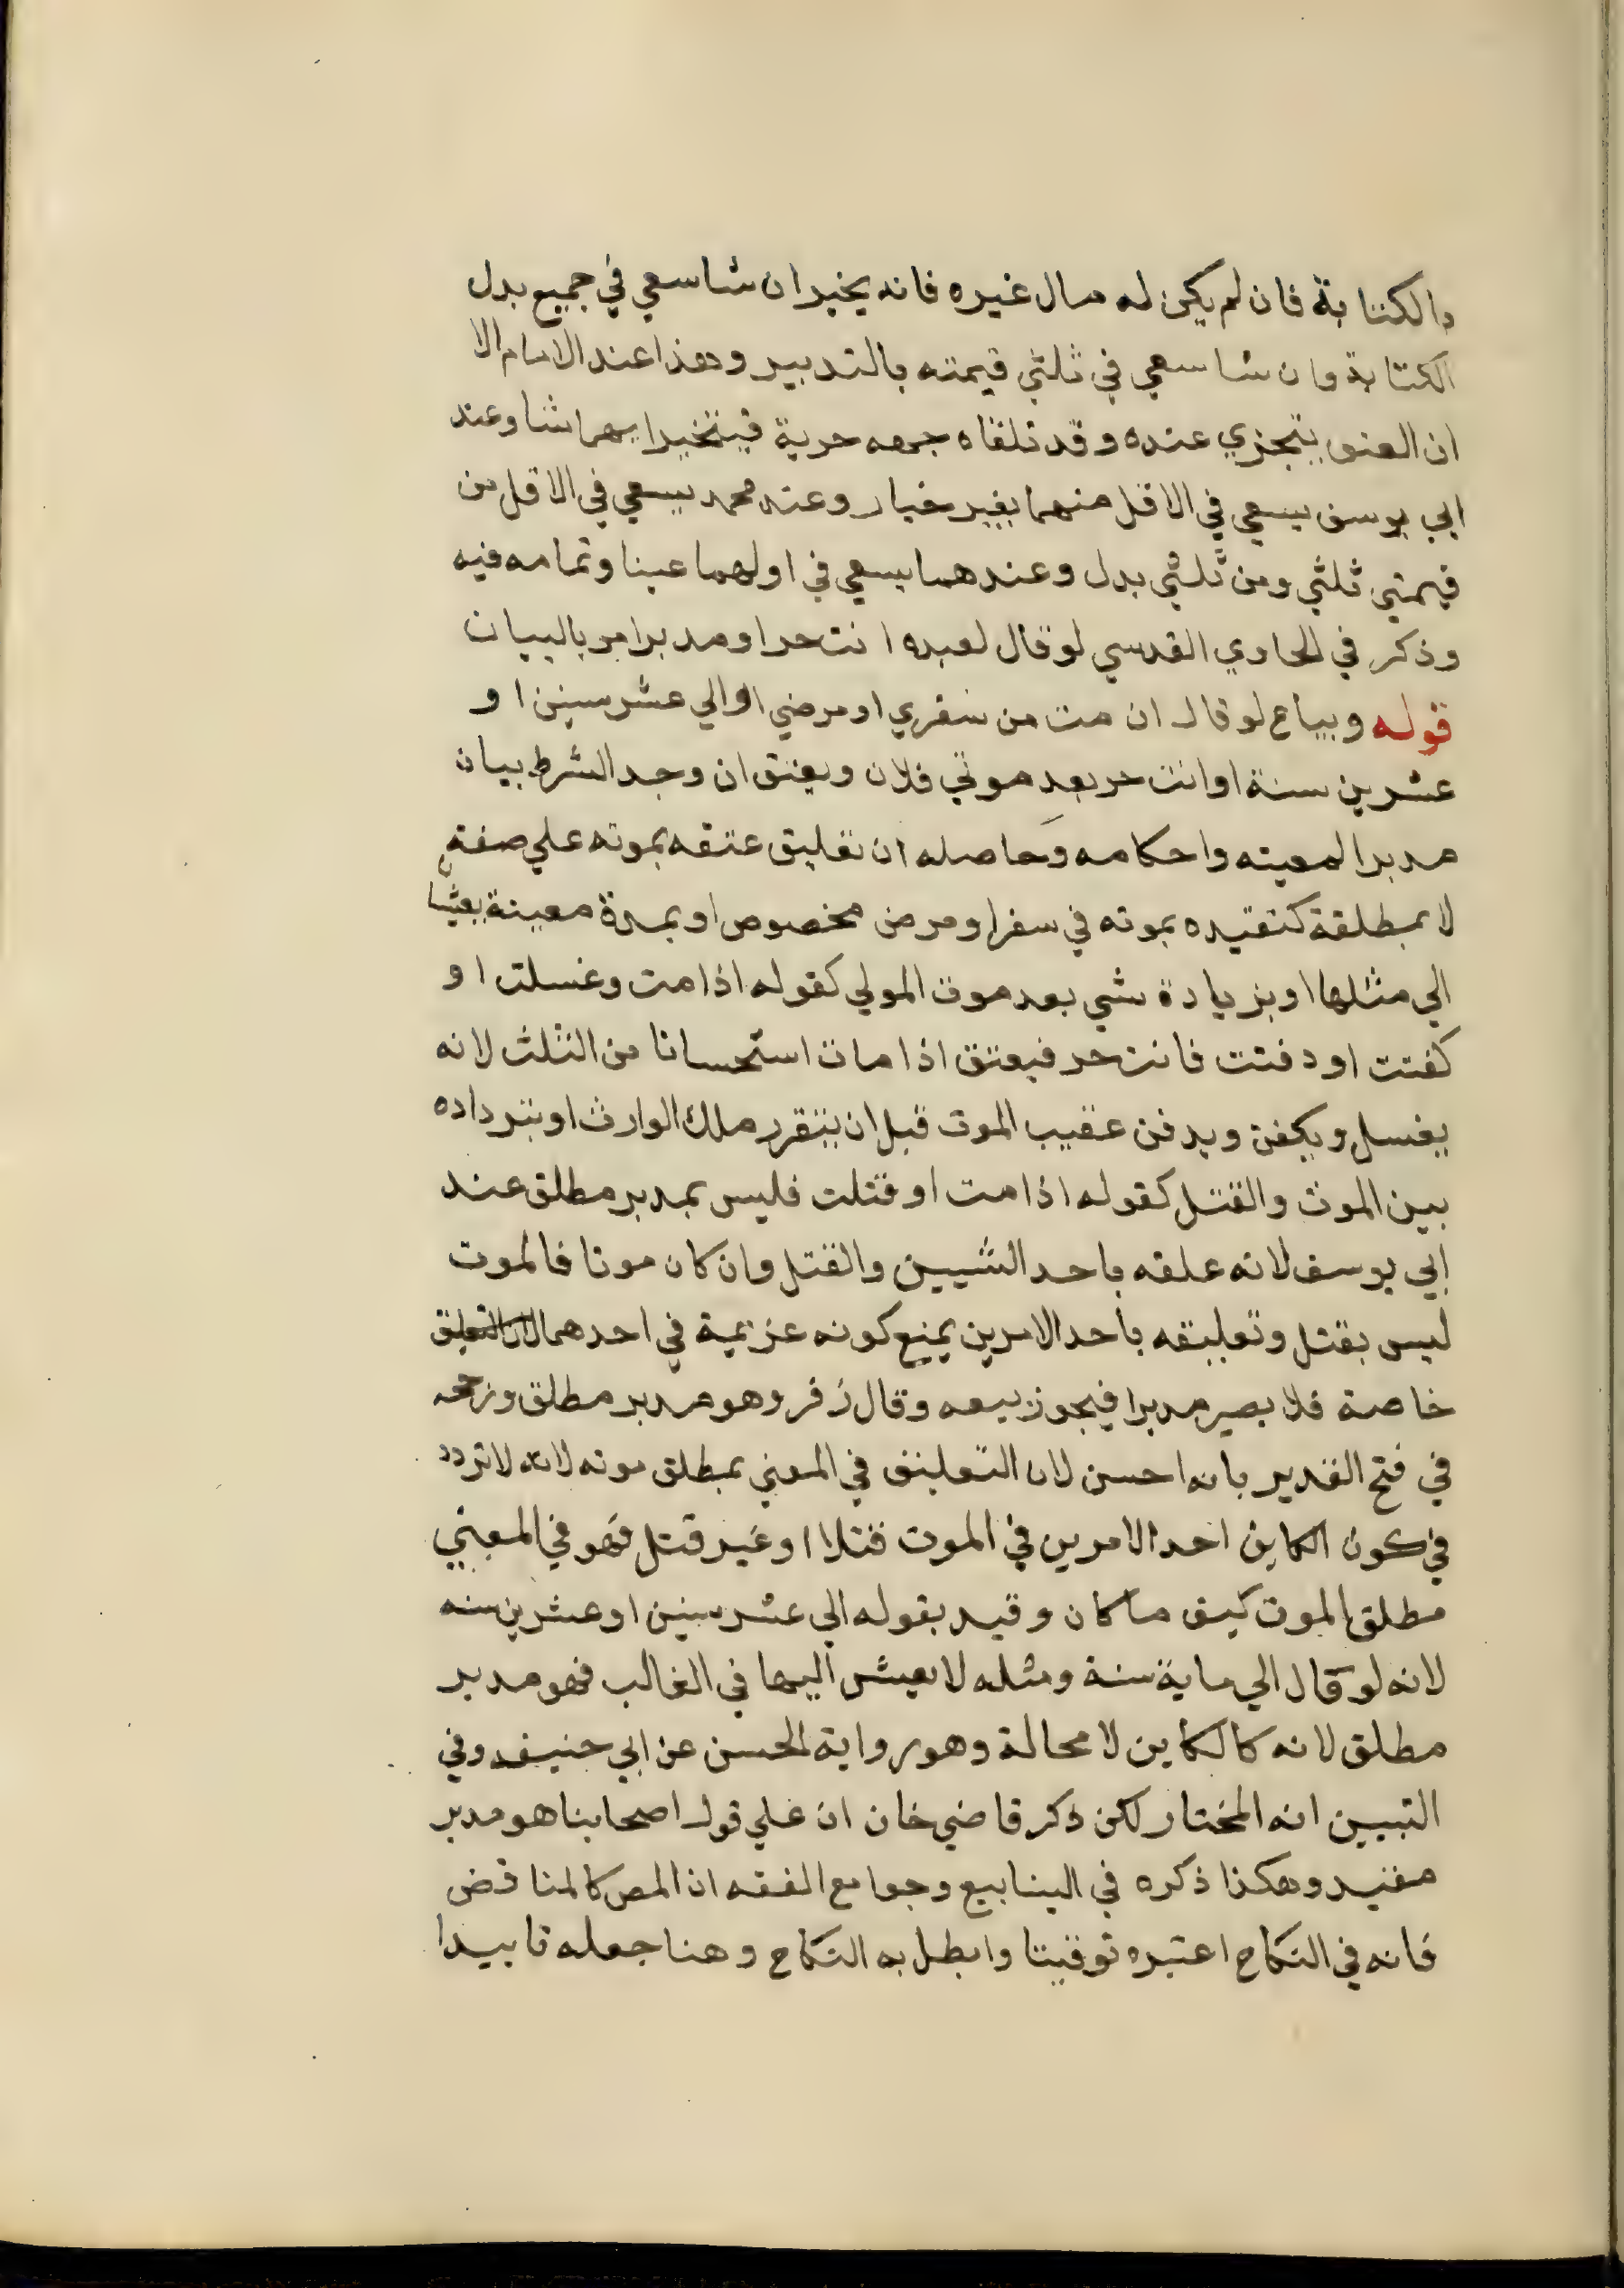 والكتابة فان لم يكن له مال غيره فانه يخير ان شا سعي في جميع بدل
الكتابة وان شا سعي في ثلثي قيمته بالتدبير وهذا عند الامام الا
ان العتق يتجزي عنده وقد تلقاه جهه حرية فيتخير ايهما شا وعند
ابي يوسف يسعي في الاقل منهما بغير خيار وعند محمد يسعي في الاقل من
قيمتي ثلثي ومن ثلثي بدل وعندهما يسعي في اولهما عينا وتمامه فيه
وذكر في الحاوي القدسي لو قال لعبده انت حر او مدبر امر بالبيان
قوله ويباع لو قال ان مت من سفري او مرضي او الي عشر سنين او
عشرين سنة او انت حر بعد موتي فلان ويعتق ان وجد الشرط بيان
مدبر المعيته واحكامه وحاصله ان تعليق عتقه بموته علي صفة
لا بمطلقة كتقيده بموته في سفر او مرض مخصوص او بمدة معينة
الي مثلها او بزيادة شي بعد موت المولي كقوله اذا مت وغسلت او
كفنت او دفنت فانت حر فيعتق اذا مات استحسانا من الثلث لانه
يغسل ويكفن ويدفن عقيب الموت قبل ان يتقرر ملك الوارث او بترداده
بين الموت والقتل كقوله اذا مت او قتلت فليس بمدبر مطلق عند
ابي يوسف لانه علقه باحد الشيين والقتل وان كان موتا فالموت
ليس بقتل وتعليقه باحد الامرين يمنع كونه عزيمة في احدهما
خاصة فلا يصير مدبرا فيجوز بيعه وقال زفر وهو مدبر مطلق ورجحه
في فتح القدير بانه احسن لان التعليق في المعني بمطلق موته لانه لا تردد
في كون الكاين احد الامرين في الموت قتلا او غير قتل فهو في المعني
مطلق الموت كيف ما كان وقيد بقوله الي عشر سنين او عشرين سنه
لانه لو قال الي ماية سنة ومثله لا يعيش اليها في الغالب فهو مدبر
مطلق لانه كالكاين لا محالة وهو رواية الحسن عن ابي حنيفه وفي
التبيين انه المختار لكن ذكر قاضي خان ان علي قول اصحابنا هو مدبر
مقيد وهكذا ذكره في الينابيع وجوامع الفقه اذ المص كالمناقض
فانه في النكاح اعتبره توقيتا وابطل به النكاح وهنا جعله تابيدا